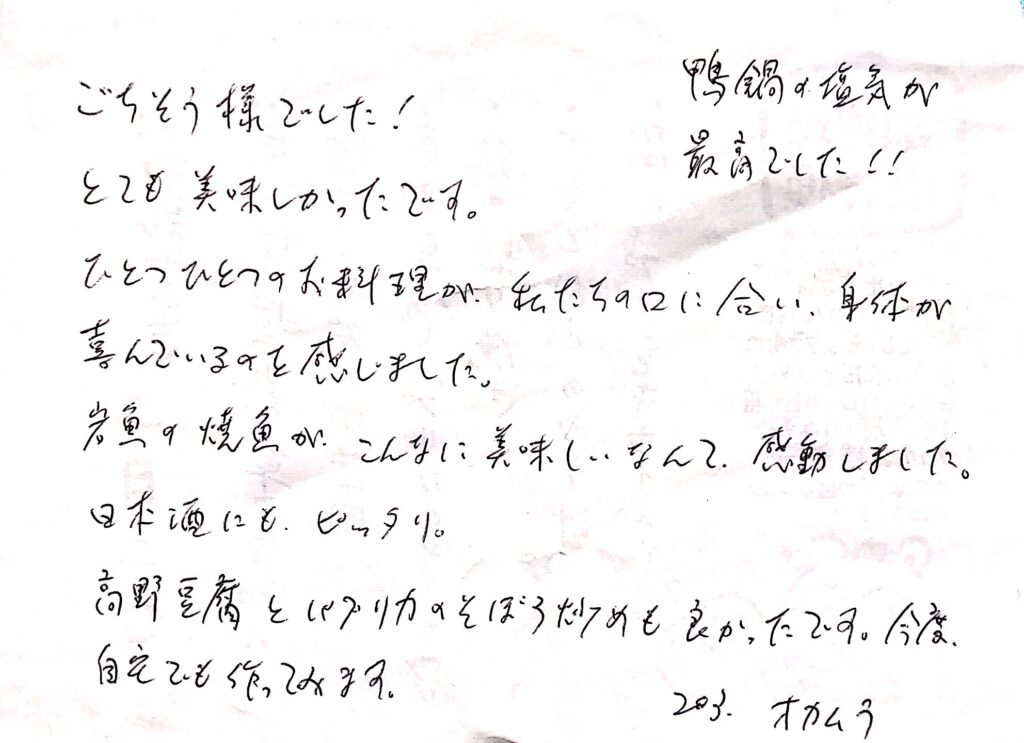 ごちそう様でした！
とても美味しかったです。
鴨鍋の塩気が
最高でした！！
ひとつひとつのお料理が、私たちの口に合い、身体が
喜んでいるのを感じました。
岩魚の焼魚が、こんなに美味しいなんて、感動しました。
日本酒にも、ピッタリ。
高野豆腐とパプリカのそぼろ炒めも良かったです。今度、
自宅でも作ってみます。
203. オカムラ